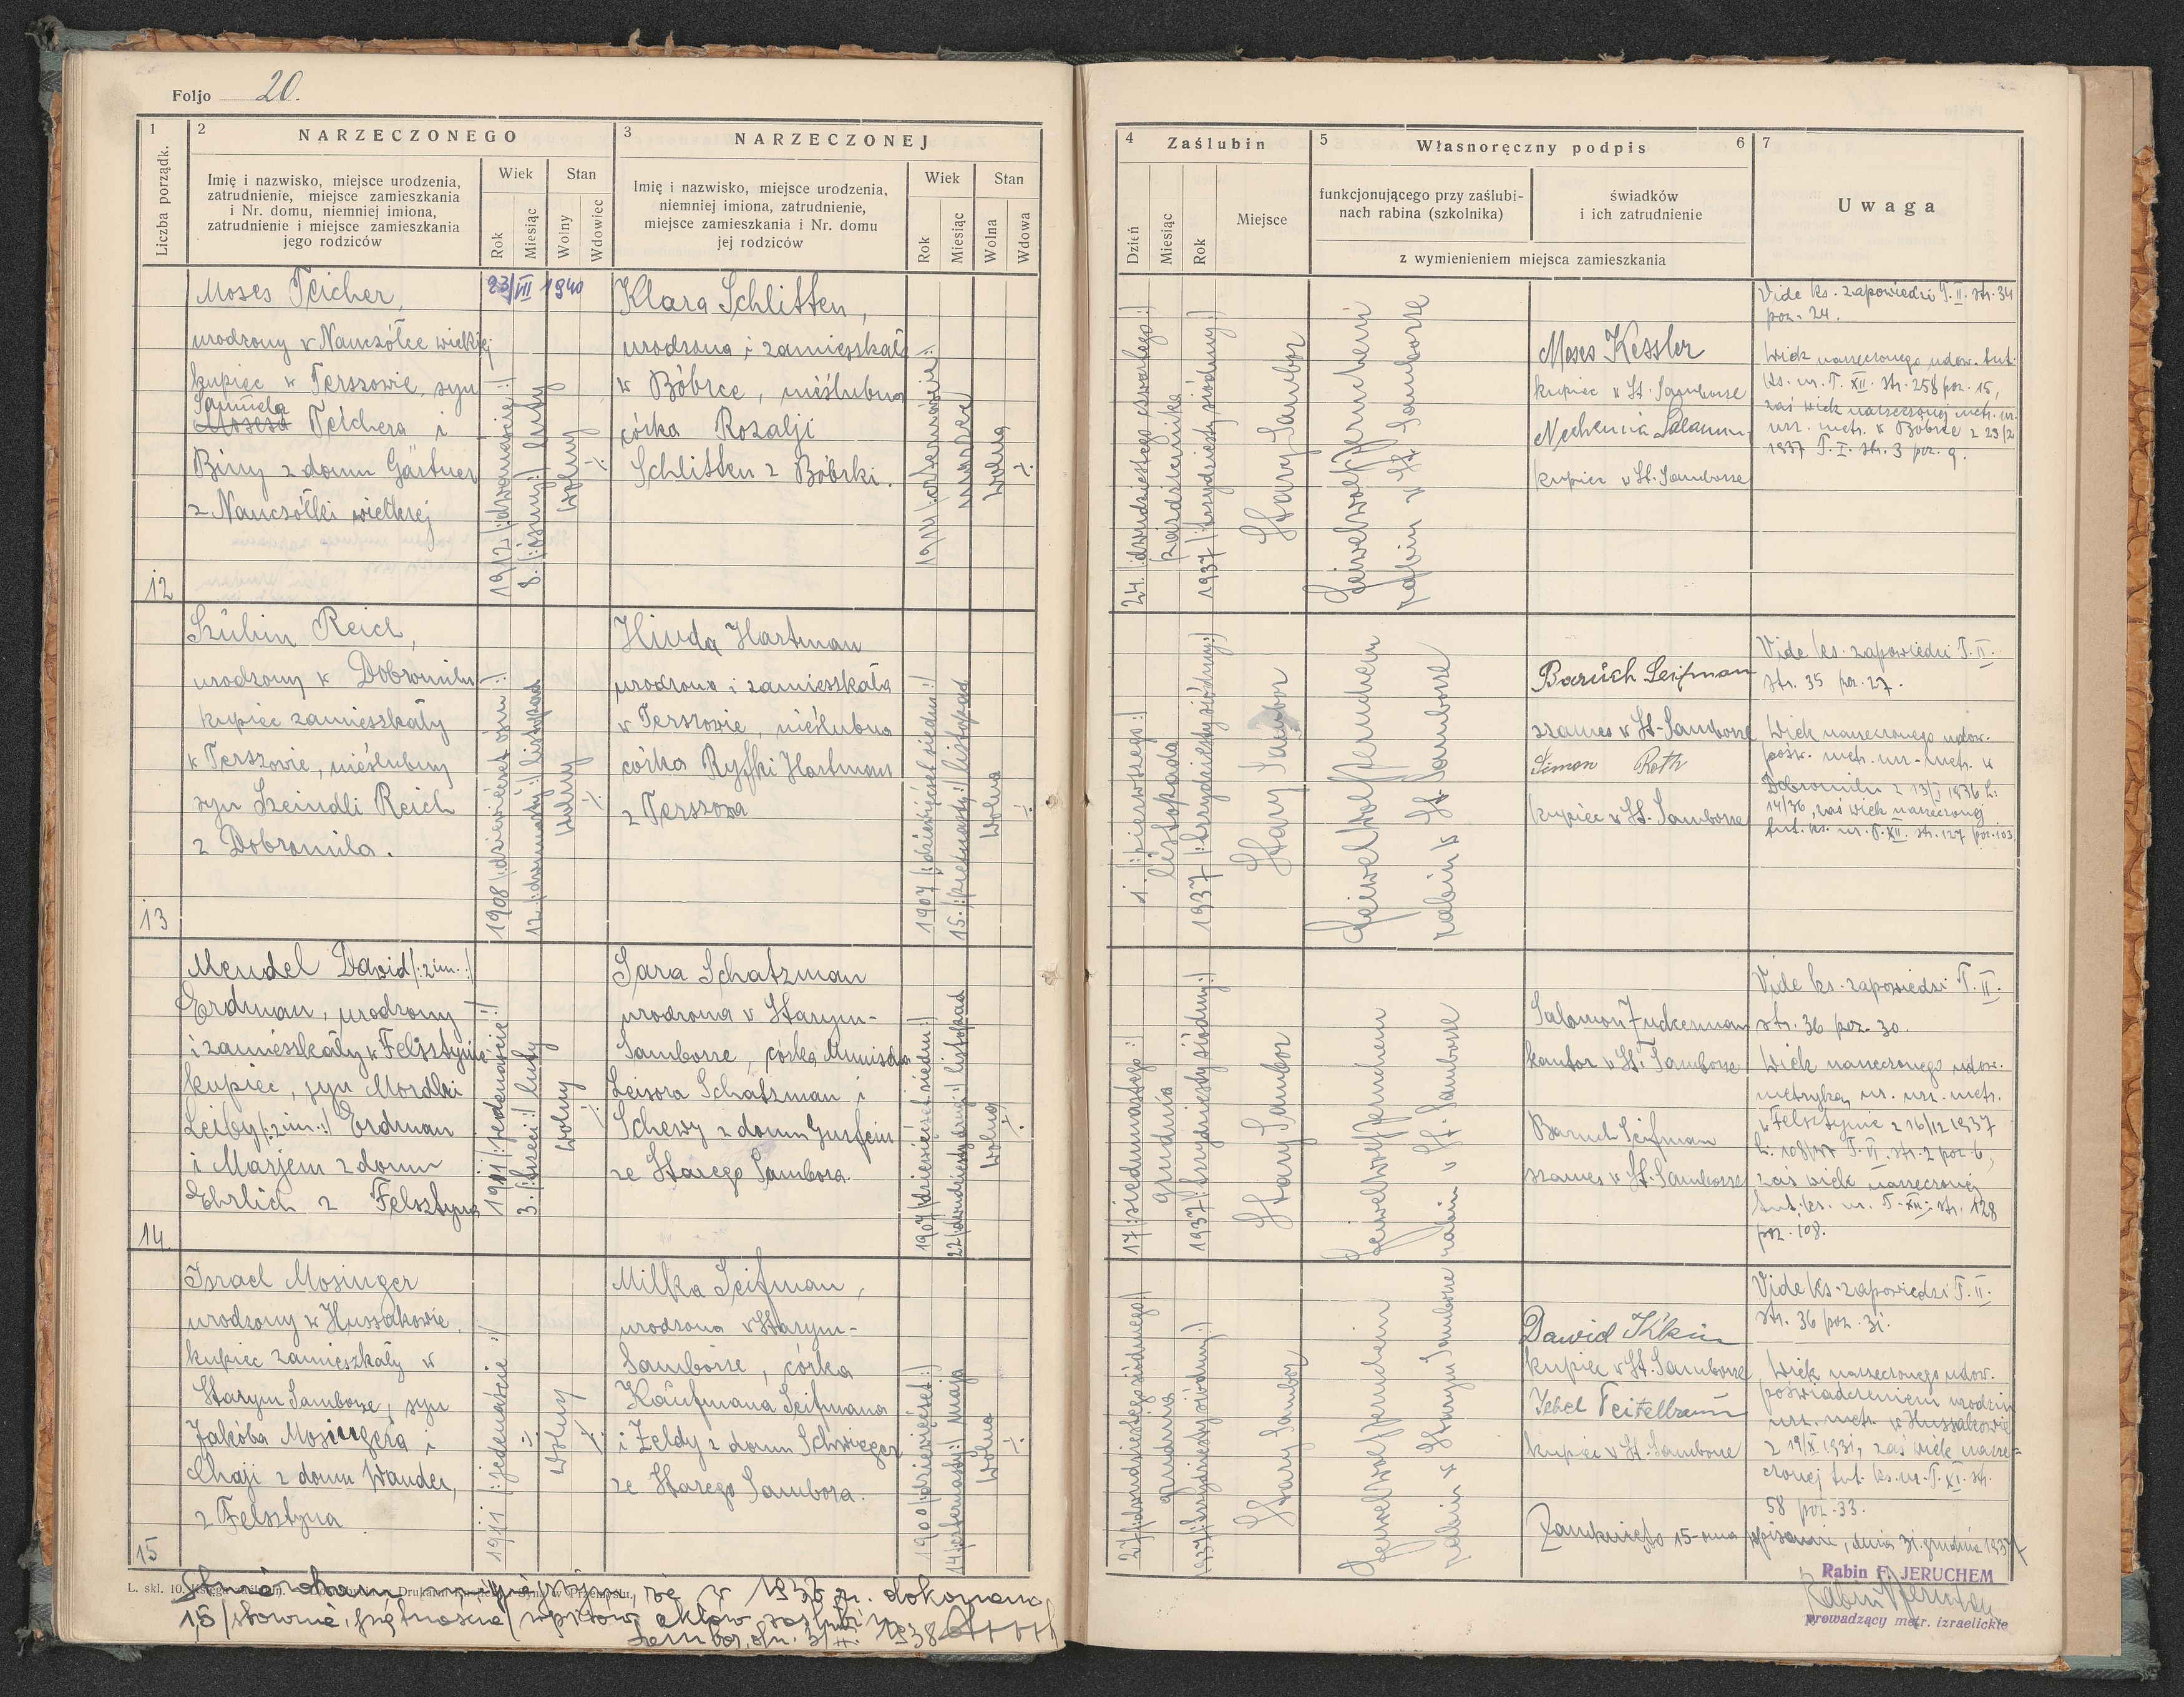 Foljo 20.
1
Liczba porządk.
2
NARZECZONEGO
Imię i nazwisko, miejsce urodzenia,
zatrudnienie, miejsce zamieszkania
i Nr. domu, niemniej imiona,
zatrudnienie i miejsce zamieszkania
jego rodziców
Wiek
Rok
Miesiąc
Stan
Wolny
Wdowiec
3
NARZECZONEJ
Imię i nazwisko, miejsce urodzenia,
niemniej imiona, zatrudnienie,
miejsce zamieszkania i Nr. domu
jej rodziców
Wiek
Rok
Miesiąc
Stan
Wolna
Wdowa
4
Zaślubin
Dzień
Miesiąc
Rok
Miejsce
5
Własnoręczny podpis
6
funkcjonującego przy zaślubi-
nach rabina (szkolnika)
świadków
i ich zatrudnienie
z wymienieniem miejsca zamieszkania
7
Uwaga
12
Moses Teicher,
urodzony w Nanczółce wielkiej
kupiec w Terszowie, syn
Samuela
Mosesa Teichera i
Biny z domu Gärtner
z Nanczółki wielkiej
23/VII 1940
1912 /:dwanaście:/
8. /:ósmy:/ luty
wolny
Klara Schlitten,
urodzona i zamieszkała
w Bóbrce, nieślubna
córka Rozalji
Schlitten z Bóbrki.
marzec
wolna
24. /:dwudziestego czwartego:/
października
1937 /:trzydziesty siódmy:/
Stary Sambor
Feiwel Wolf Jeruchem
rabin w St. Samborze
Moses Kessler
kupiec w St. Samborze
Nechemia Salamon
kupiec w St. Samborze
Vide ks. zapowiedzi T. II. str. 34
poz. 24.
Wiek narzeczonego udow. tut.
ks. ur. T. XII. str. 258 poz. 15,
zaś wiek narzeczonej metr. ur.
urz. metr. w Bóbrce z 23/2
1937 T. I. str. 3 poz. 9.
13
Szubin Reich,
urodzony w Dobromilu
kupiec zamieszkały
w Terszowie, nieślubny
syn Szeindli Reich
z Dobromila.
1908 /:dziewięćset ósm:/
12. /:dwunasty:/ listopad
wolny
Hinda Hartman
urodzona i zamieszkała
w Terszowie, nieślubna
córka Ryfki Hartman
z Terszowa
1907 /:dziewięćset siedm:/
15. /:piętnasty:/ listopad
wolna
1. /:pierwszego:/
listopada
1937 /:trzydziesty siódmy:/
Stary Sambor
Feiwel Wolf Jeruchem
rabin w St. Samborze
Baruch Seifman
szames w St. Samborze
Simon Roth
kupiec w St. Samborze
Vide ks. zapowiedzi T. II.
str. 35 poz. 27.
Wiek narzeczonego udow.
pośw. metr. urz. metr. w
Dobromilu z 13/I 1936 L:
14/36, zaś wiek narzeczonej
tut. ks. ur. T. XII. str. 127 poz. 103
14
Mendel Dawid /:2 im.:/
Erdman, urodzony
i zamieszkały w Felsztynie
kupiec, syn Mordki
Leiby /:2 im.:/ Erdman
i Marjem z domu
Ehrlich z Felsztyna
1911 /:jedenaście:/
3. /:trzeci:/ luty
wolny
Sara Schatzman
urodzona w Starym-
Samborze, córka
Leisora Schatzman i
Schewy z domu Gusfein
ze Starego Sambora.
1907 /:dziewięćset siedm:/
22 /:dwudziesty drugi:/ listopad
wolna
17 /:siedmnastego:/
grudnia
1937 /:trzydziesty siódmy:/
Stary Sambor
Feiwel Wolf Jeruchem
rabin w St. Samborze
Salamon Zuckerman
kantor w St. Samborze
Baruch Seifman
szames w St. Samborze
Vide ks. zapowiedzi T. II.
str. 36 poz. 30.
Wiek narzeczonego udow.
metryką ur. urz. metr.
w Felsztynie z 16/12 1937
L: 108/37 T. VI. str. 2 poz. 6,
zaś wiek narzeczonej
tut. ks. ur. T. XII. str. 128
poz. 108.
15
Israel Mosinger
urodzony w Hussakowie,
kupiec zamieszkały w
Starym Samborze, syn
Jakóba Mosingera i
Chaji z domu Wander,
z Felsztyna
1911 /:jedenaście:/
wolny
Milka Seifman,
urodzona w Starym-
Samborze, córka
Kaufmana Seifmana
i Zeldy z domu Schwieger
ze Starego Sambora.
1900 /:dziewięćset:/
14 /:czternasty:/ maja
wolna
27 /:dwudziestego siódmego:/
grudnia
1937 /:trzydziesty siódmy:/
Stary Sambor
Feiwel Wolf Jeruchem
rabin w Starym Samborze
Dawid
kupiec w St. Samborze
Teitelbaum
kupiec w St. Samborze
Vide ks. zapowiedzi T. II.
str. 36 poz. 31.
Wiek narzeczonego udow.
poświadczeniem urodzin
urz. metr. w Hussakowie
z 19/X 1931, zaś wiek narze-
czonej tut. ks. ur. T. XI. str.
58 poz. 33.
Zamknięto 15-oma wpisami, dnia 31. grudnia 1937
Rabin F. JERUCHEM
prowadzący metr. izraelickie
L. skl. 10.
w 1937 r. dokonano
15 /słownie: piętnaście/ wpisów aktów zaślubin
Sambor, dn. 1938